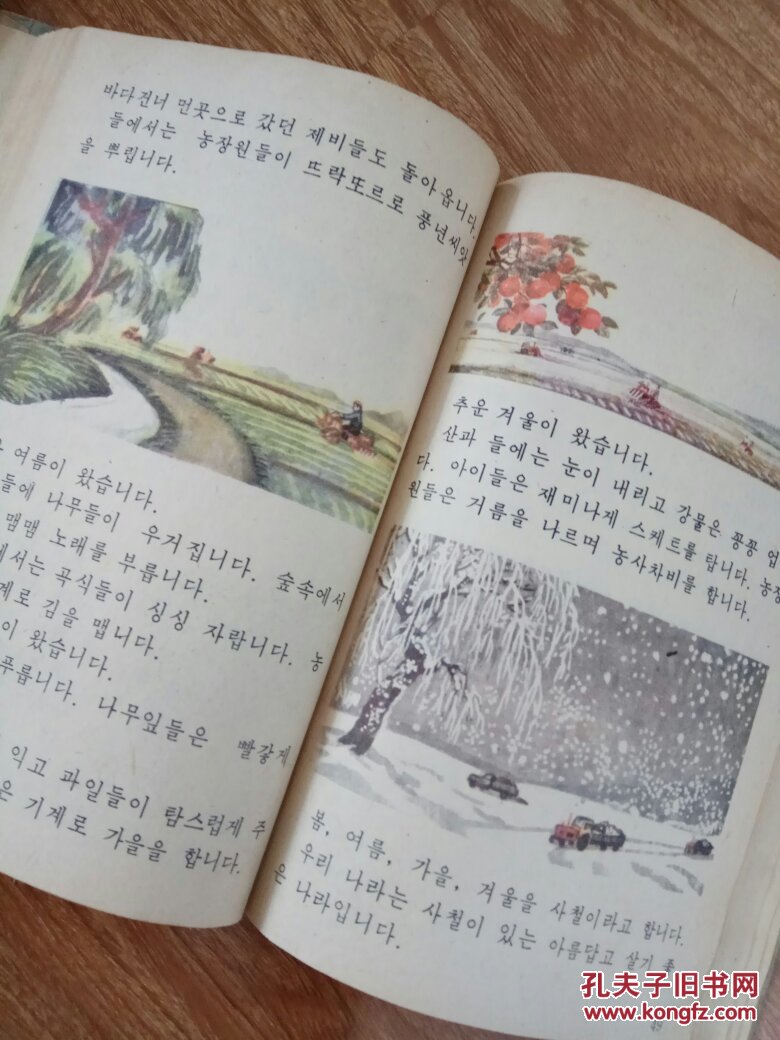 바다건너 먼곳으로 갔던 제비들도 돌아옵니다.
들에서는 농장원들이 뜨락또르로 풍년씨앗
을 뿌립니다.
여름이 왔습니다.
들에 나무들이 우거집니다. 숲속에서
맴맴 노래를 부릅니다.
에서는 곡식들이 싱싱 자랍니다. 농
계로 김을 맵니다.
이 왔습니다.
푸릅니다. 나무잎들은 빨갛게
익고 과일들이 탐스럽게 주
은 기계로 가을을 합니다.
추운 겨울이 왔습니다.
산과 들에는 눈이 내리고 강물은 꽁꽁 업
다. 아이들은 재미나게 스케트를 탑니다. 농장
원들은 거름을 나르며 농사차비를 합니다.
봄, 여름, 가을, 겨울을 사철이라고 합니다.
우리 나라는 사철이 있는 아름답고 살기 좋
은 나라입니다.
49
孔夫子旧书网
www.kongfz.com